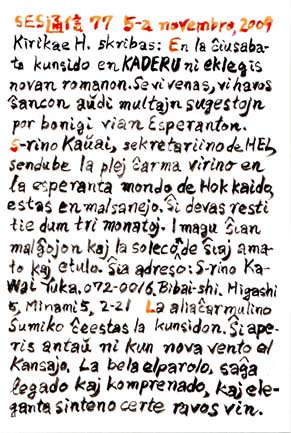 SES通信 77 5-a novembro, 2009
Kirikae H. skribas: En la ĉiusaba-
ta kunsido en KADERU ni eklegis
novan romanon. Se vi venas, vi havos
ŝancon aŭdi multajn sugestojn
por bonigi vian Esperanton.
S-rino Kaŭai, sekretariino de HEL,
sendube la plej ĉarma virino en
la esperanta mondo de Hokkaido,
estas en malsanejo. Ŝi devas resti
tie dum tri monatoj. Imagu ŝian
malĝojon kaj la solecoⁿ de ŝiaj ama-
to kaj etulo. Ŝia adreso: S-rino Ka-
wai Yuka, 072-0016, Bibai-shi, Higashi
5, Minami 5, 2-21 La alia ĉarmulino
Sumiko ĉeestas la kunsidon. Ŝi ape-
ris antaŭ ni kun nova vento el
Kansajo. La bela elparolo, saĝa
legado kaj komprenado, kaj ele-
ganta sinteno certe ravos vin.